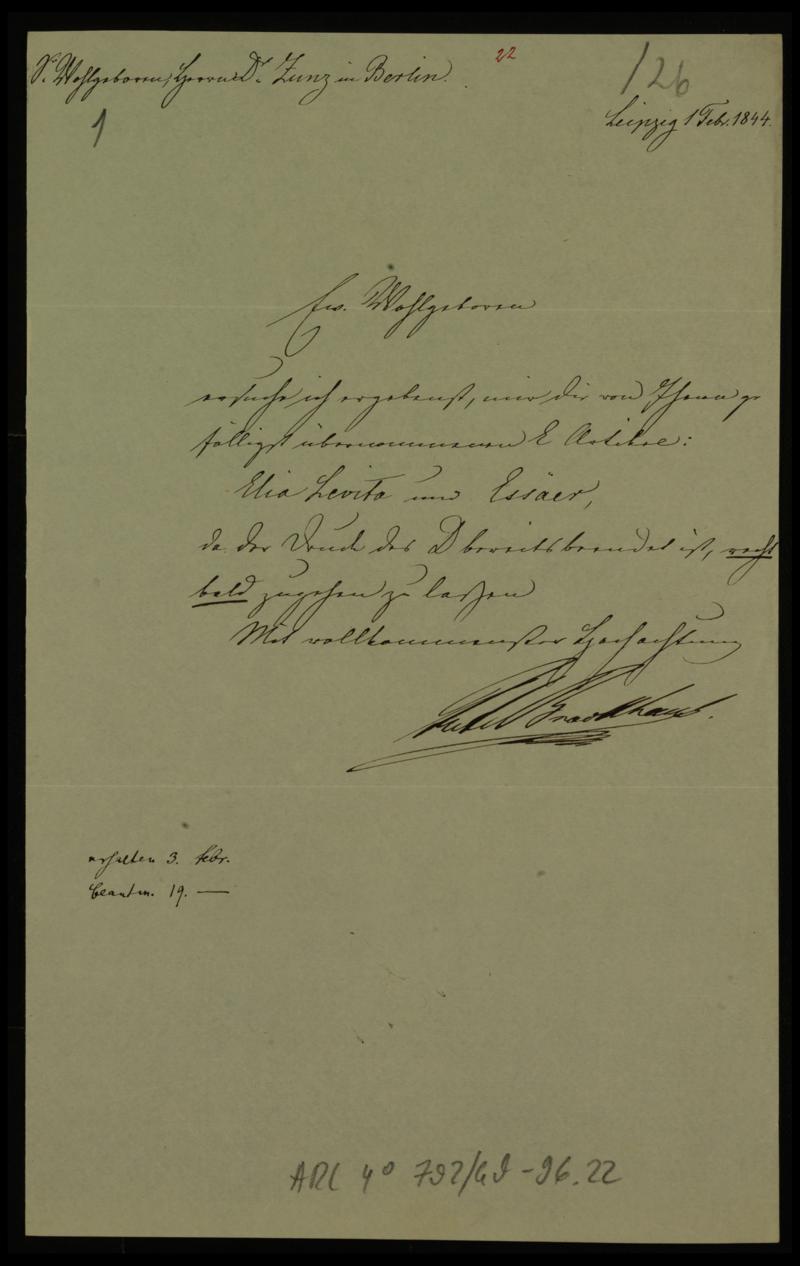 Sr. Wohlgeboren, Herrn Dr. Zunz in Berlin.
22
126
1
Leipzig 1 Febr. 1844.
Ew. Wohlgeboren
ersuche ich ergebenst, mir die von Ihnen ge
fälligst übernommenen E Artikel:
Elia Levita und Essäer,
da der Druck des D bereits beendet ist, recht
bald zugehen zu lassen
Mit vollkommenster Hochachtung
Brockhaus.
erhalten 3. febr.
beantw. 19. —
ARC 4° 792/G9-96.22